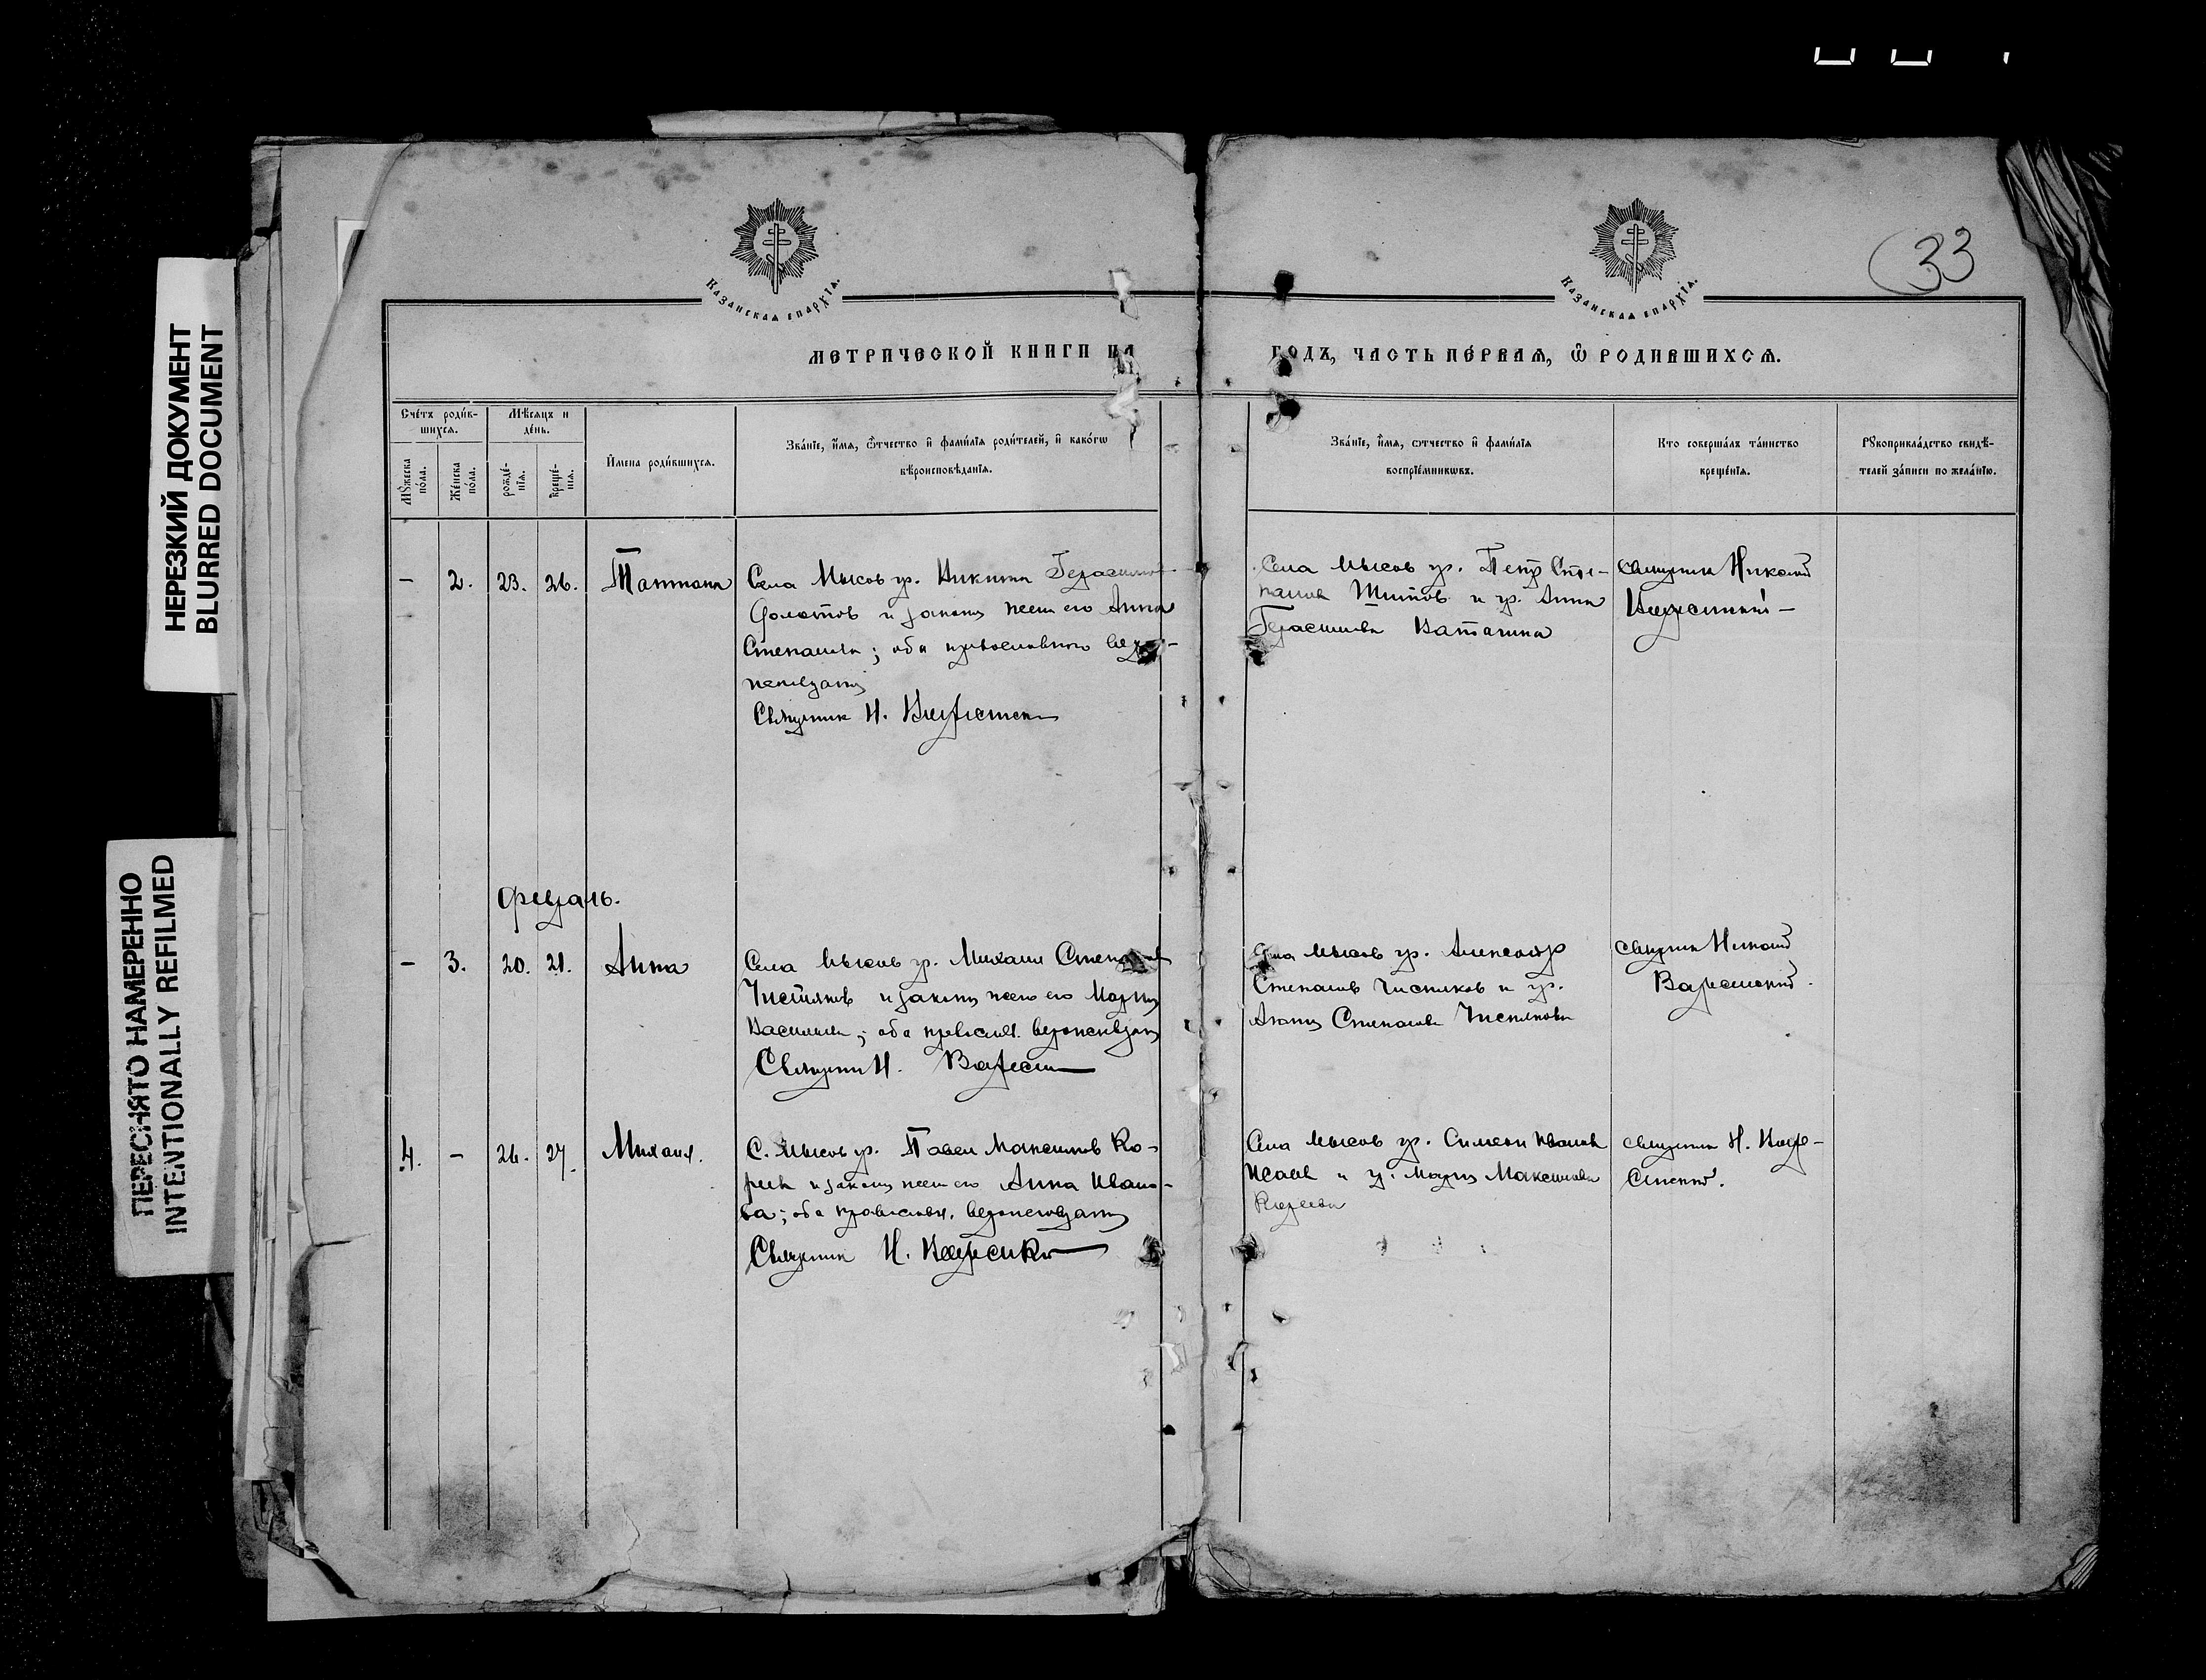 НЕРЕЗКИЙ ДОКУМЕНТ
BLURRED DOCUMENT
ПЕРЕСНЯТО НАМЕРЕННО
INTENTIONALLY REFILMED
33
Казанская епархія.
Казанская епархія.
МЕТРИЧЕСКОЙ КНИГИ НА ГОДЪ, ЧАСТЬ ПЕРВАЯ, Ѡ РОДИВШИХСЯ.
Счетъ родив-
шихся.
Мѣсяцъ и
день.
Мꙋжеска
пола.
Женска
пола.
рожде-
нія.
креще-
нія.
Имена родившихся.
Званіе, имя, ѻтчество и фамилія родителей, и какогѡ
вѣроисповѣданія.
Званіе, имя, ѻтчество и фамилія
воспріемникѡвъ.
Кто совершалъ таинство
крещенія.
Рꙋкоприкладство свидѣ-
телей записи по желанію.
– 2. 23. 26. Татиана
Села Мысов гр. Никита Герасимов
и законн жена его Анна
Степанова; оба православного веро-
исповедания
Священник Н.
Села Мысов гр. Петр Сте-
панов Титов и гр. Анна
Герасимова
священник Николай
Февраль.
– 3. 20. 21. Анна
Села Мысов гр. Михаил Степанов
Чистяков и законн жена его Мария
Васильева; оба православ. вероисповедан
Священник Н.
Села Мысов гр. Александр
Степанов Чистяков и гр.
Степанова Чистякова
священник Николай
4. – 26. 27. Михаил.
С. Мысов гр. Павел Максимов Ко-
и законн жена его Анна Ивано-
ва; оба православн. вероисповедания
Священник Н.
Села Мысов гр. Симеон Иванов
Исаев и гр. Мария Максимова
священник Н.